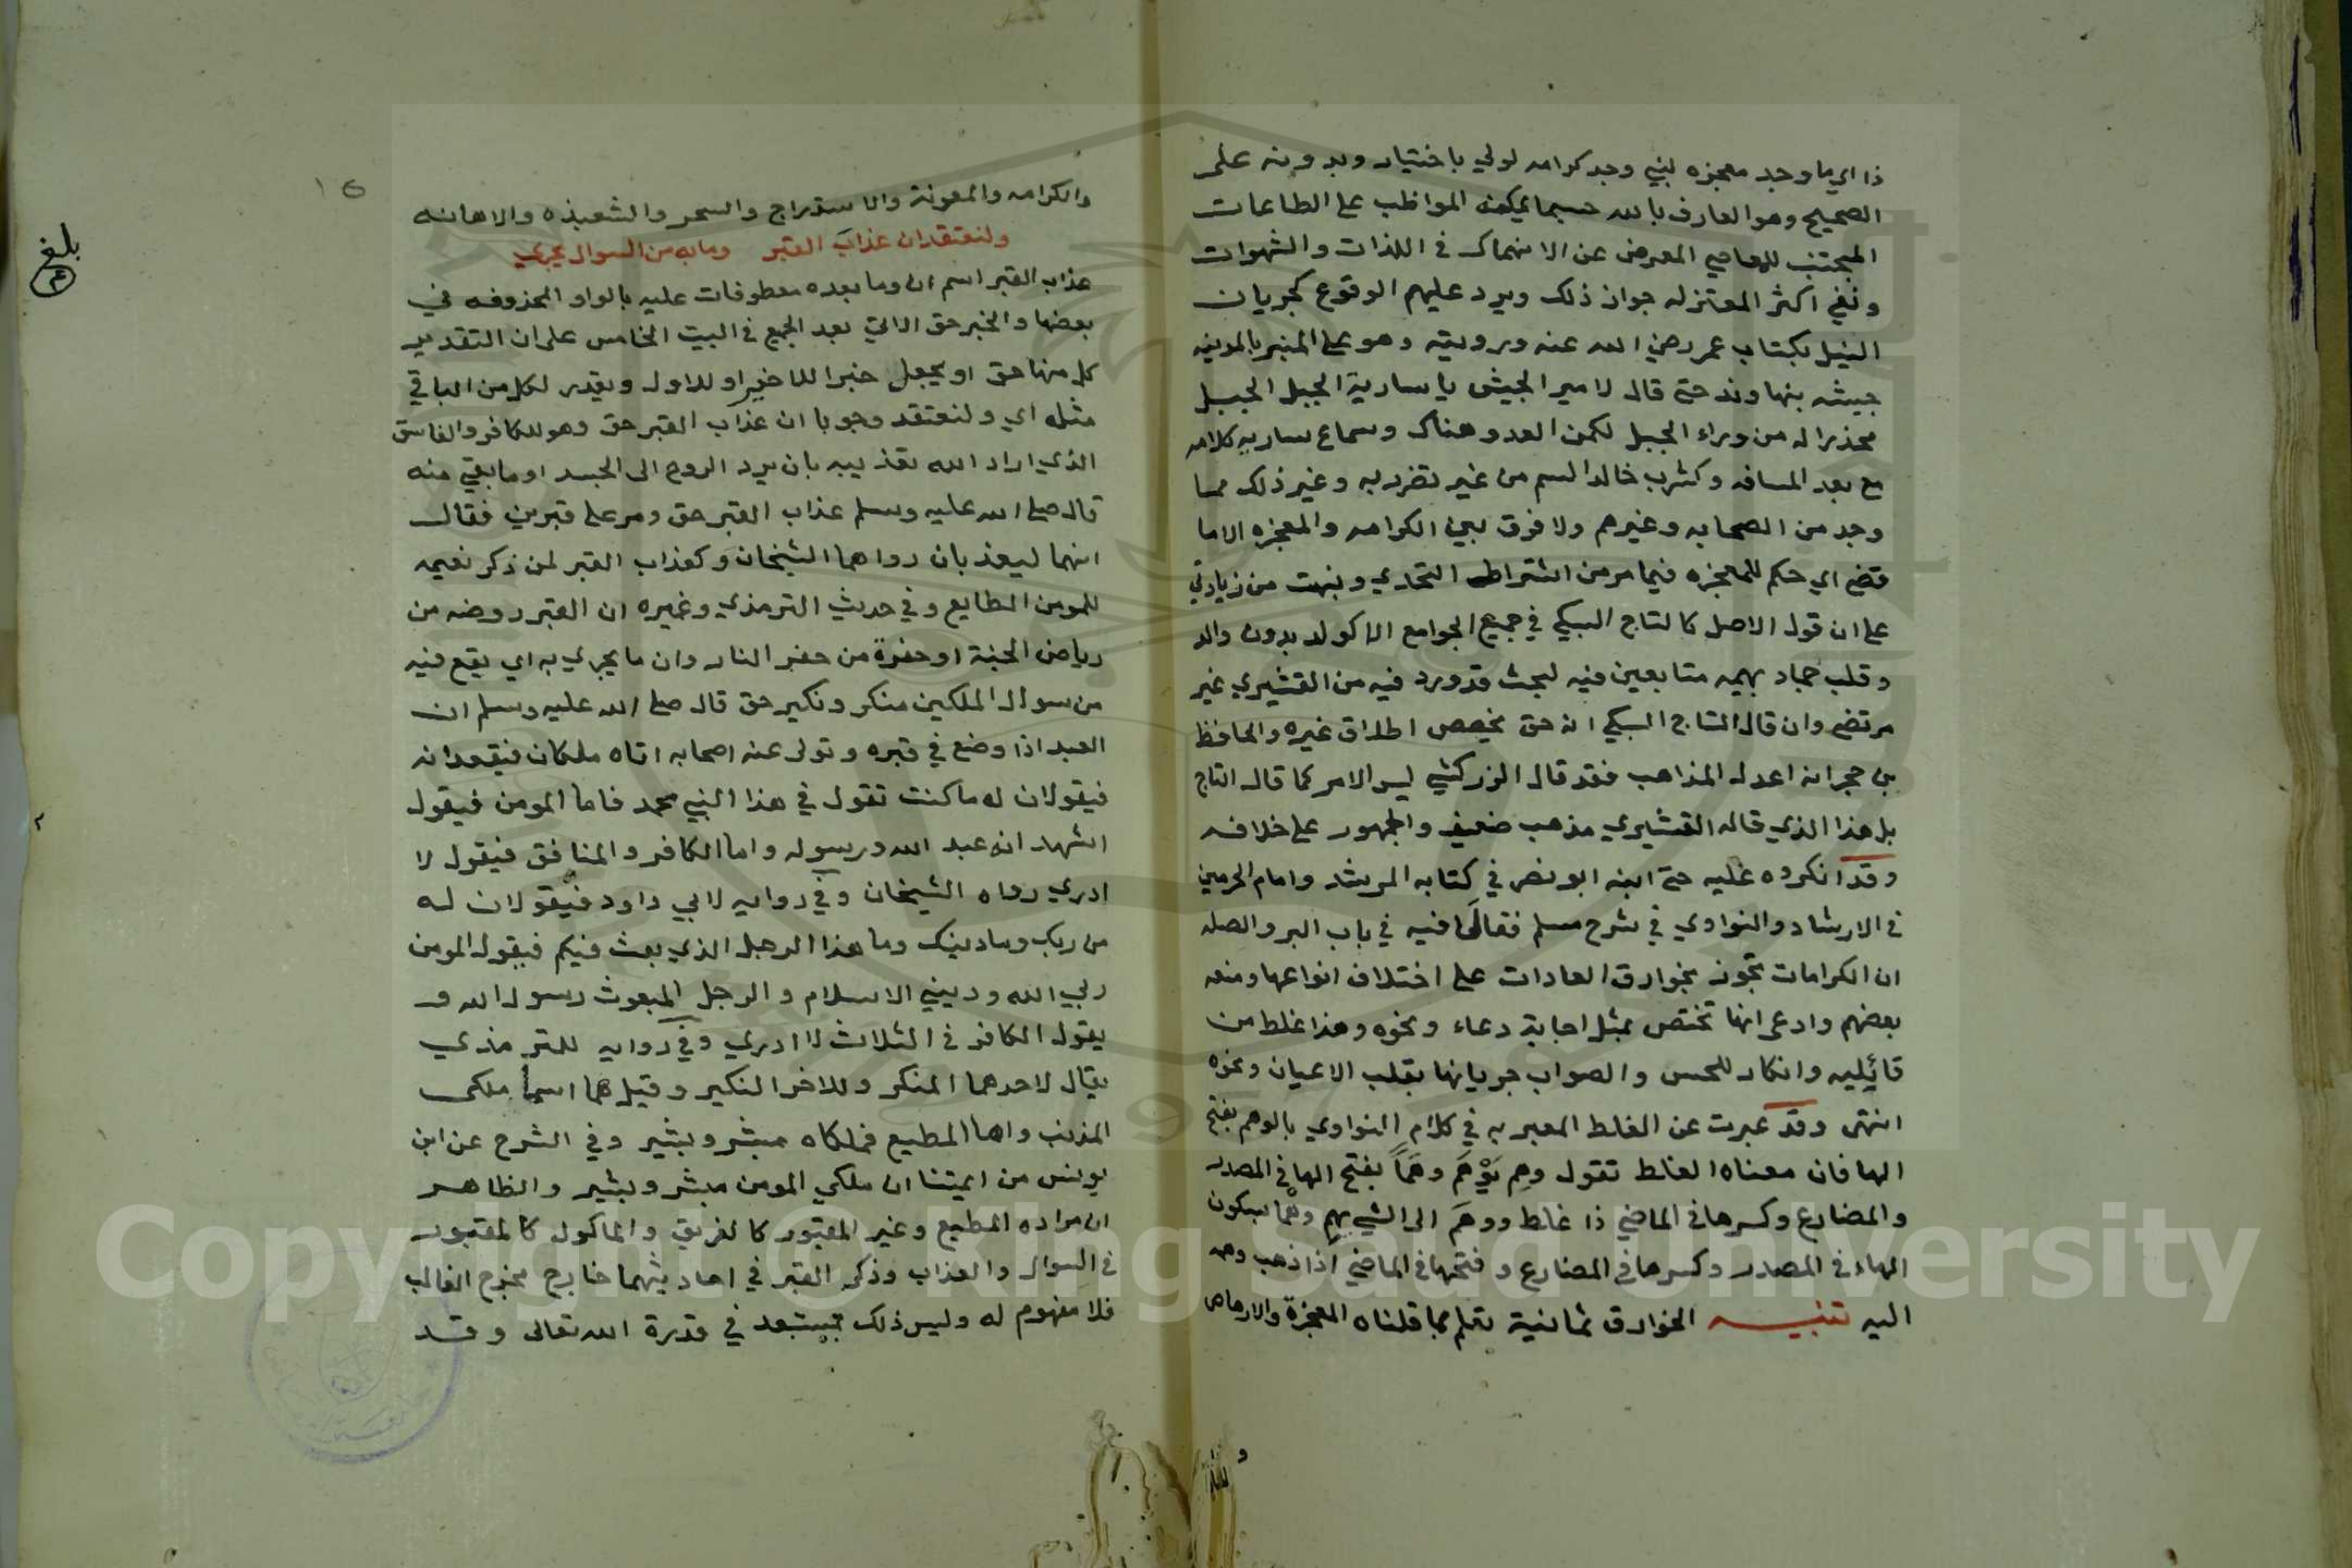 ذا اي ما وجد معجزه لنبي وجد كرامه لولي باختيار وبدونه على
الصحيح وهو العارف بالله حسبما يمكنه المواظب على الطاعات
المجتنب للمعاصي المعرض عن الانهماك في اللذات والشهوات
ونفي اكثر المعتزله جواز ذلك ويرد عليهم الوقوع كجريان
النيل بكتاب عمر رضي الله عنه ورويته وهو على المنبر بالمدينه
جيشه بنهاوند حتى قال لامير الجيش يا سارية الجبل الجبل
محذرا له من وراء الجبل لكمن العدو هناك وسماع ساريه كلامه
مع بعد المسافه وكشرب خالد السم من غير تضرر به وغير ذلك مما
وجد من الصحابه وغيرهم ولا فرق بين الكرامه والمعجزه الاما
قضي اي حكم للمعجزه فيما مر من اشتراط التحدي ونبهت من زيادتي
على ان قول الاصل كالتاج السبكي في جمع الجوامع الا كولد بدون والد
وقلب جماد بهيمه متابعين فيه لبحث قد ورد فيه من القشيري غير
مرتضى وان قال التاج السبكي انه حق يخصص اطلاق غيره والحافظ
بن حجر انه اعدل المذاهب فقد قال الزركشي ليس الامر كما قال التاج
بل هذا الذي قاله القشيري مذهب ضعيف والجمهور على خلافه
وقد انكروه عليه حتى ابنه ابو نصر في كتابه المرشد وامام الحرمين
في الارشاد والنواوي في شرح مسلم فقال فيه في باب البر والصله
ان الكرامات تجوز بخوارق العادات على اختلاف انواعها ومنعه
بعضهم وادعى انها تختص بمثل اجابة دعاء ونحوه وهذا غلط من
قائليه وانكار للحس والصواب جريانها بقلب الاعيان ونحوه
انتهى وقد عبرت عن الغلط المعبر به في كلام النواوي بالوهم بفتح
الها فان معناه الغلط تقول وهِم يَوْهَم وهَماً بفتح الها في المصدر
والمضارع وكسرها في الماضي ذا غلط ووهَم الى الشي يهِم وهْماً بسكون
الهاء في المصدر وكسرها في المضارع وفتحها في الماضي اذا ذهب وهمه
اليه تنبيه الخوارق ثمانية تعلم مما قلناه المعجزة والارهاص
والكرامه والمعونة والاستدراج والسحر والشعبذه والاهانه
ولنعتقد ان عذاب القبر وما به من السوال يجري
عذاب القبر اسم ان وما بعده معطوفات عليه بالواو المحذوفه في
بعضها والخبر حق الاتي بعد الجمع في البيت الخامس على ان التقدير
كل منها حق او يجعل خبرا للاخير او للاول ويقدر لكل من الباقي
مثله اي ولنعتقد وجوبا ان عذاب القبر حق وهو للكافر والفاسق
الذي اراد الله تعذيبه بان يرد الروح الى الجسد او ما بقي منه
قال صلى الله عليه وسلم عذاب القبر حق ومر على قبرين فقال
انهما ليعذبان رواهما الشيخان وكعذاب القبر لمن ذكر نعيمه
للمومن الطايع وفي حديث الترمذي وغيره ان القبر روضه من
رياض الجنة او حفرة من حفر النار وان ما يجري به اي يقع فيه
من سوال الملكين منكر ونكير حق قال صلى الله عليه وسلم ان
العبد اذا وضع في قبره وتولى عنه اصحابه اتاه ملكان فيقعدانه
فيقولان له ما كنت تقول في هذا النبي محمد فاما المومن فيقول
اشهد انه عبد الله ورسوله واما الكافر والمنافق فيقول لا
ادري رواه الشيخان وفي روايه لابي داود فيقولان له
من ربك وما دينك وما هذا الرجل الذي بعث فيكم فيقول المومن
ربي الله وديني الاسلام والرجل المبعوث رسول الله و
يقول الكافر في الثلاث لا ادري وفي روايه للترمذي
يقال لاحدهما المنكر وللاخر النكير وقيل هما اسما ملكى
المذنب واما المطيع فملكاه مبشر وبشير وفي الشرح عن ابن
يونس من ايمتنا ان ملكي المومن مبشر وبشير والظاهر
ان مراده المطيع وغير المقبور كالغريق والماكول كالمقبور
في السوال والعذاب وذكر القبر في احاديثهما خارج مخرج الغالب
فلا مفهوم له وليس ذلك بمستبعد في قدرة الله تعالى وقد
بلغ
Copyright © King Saud University
1957